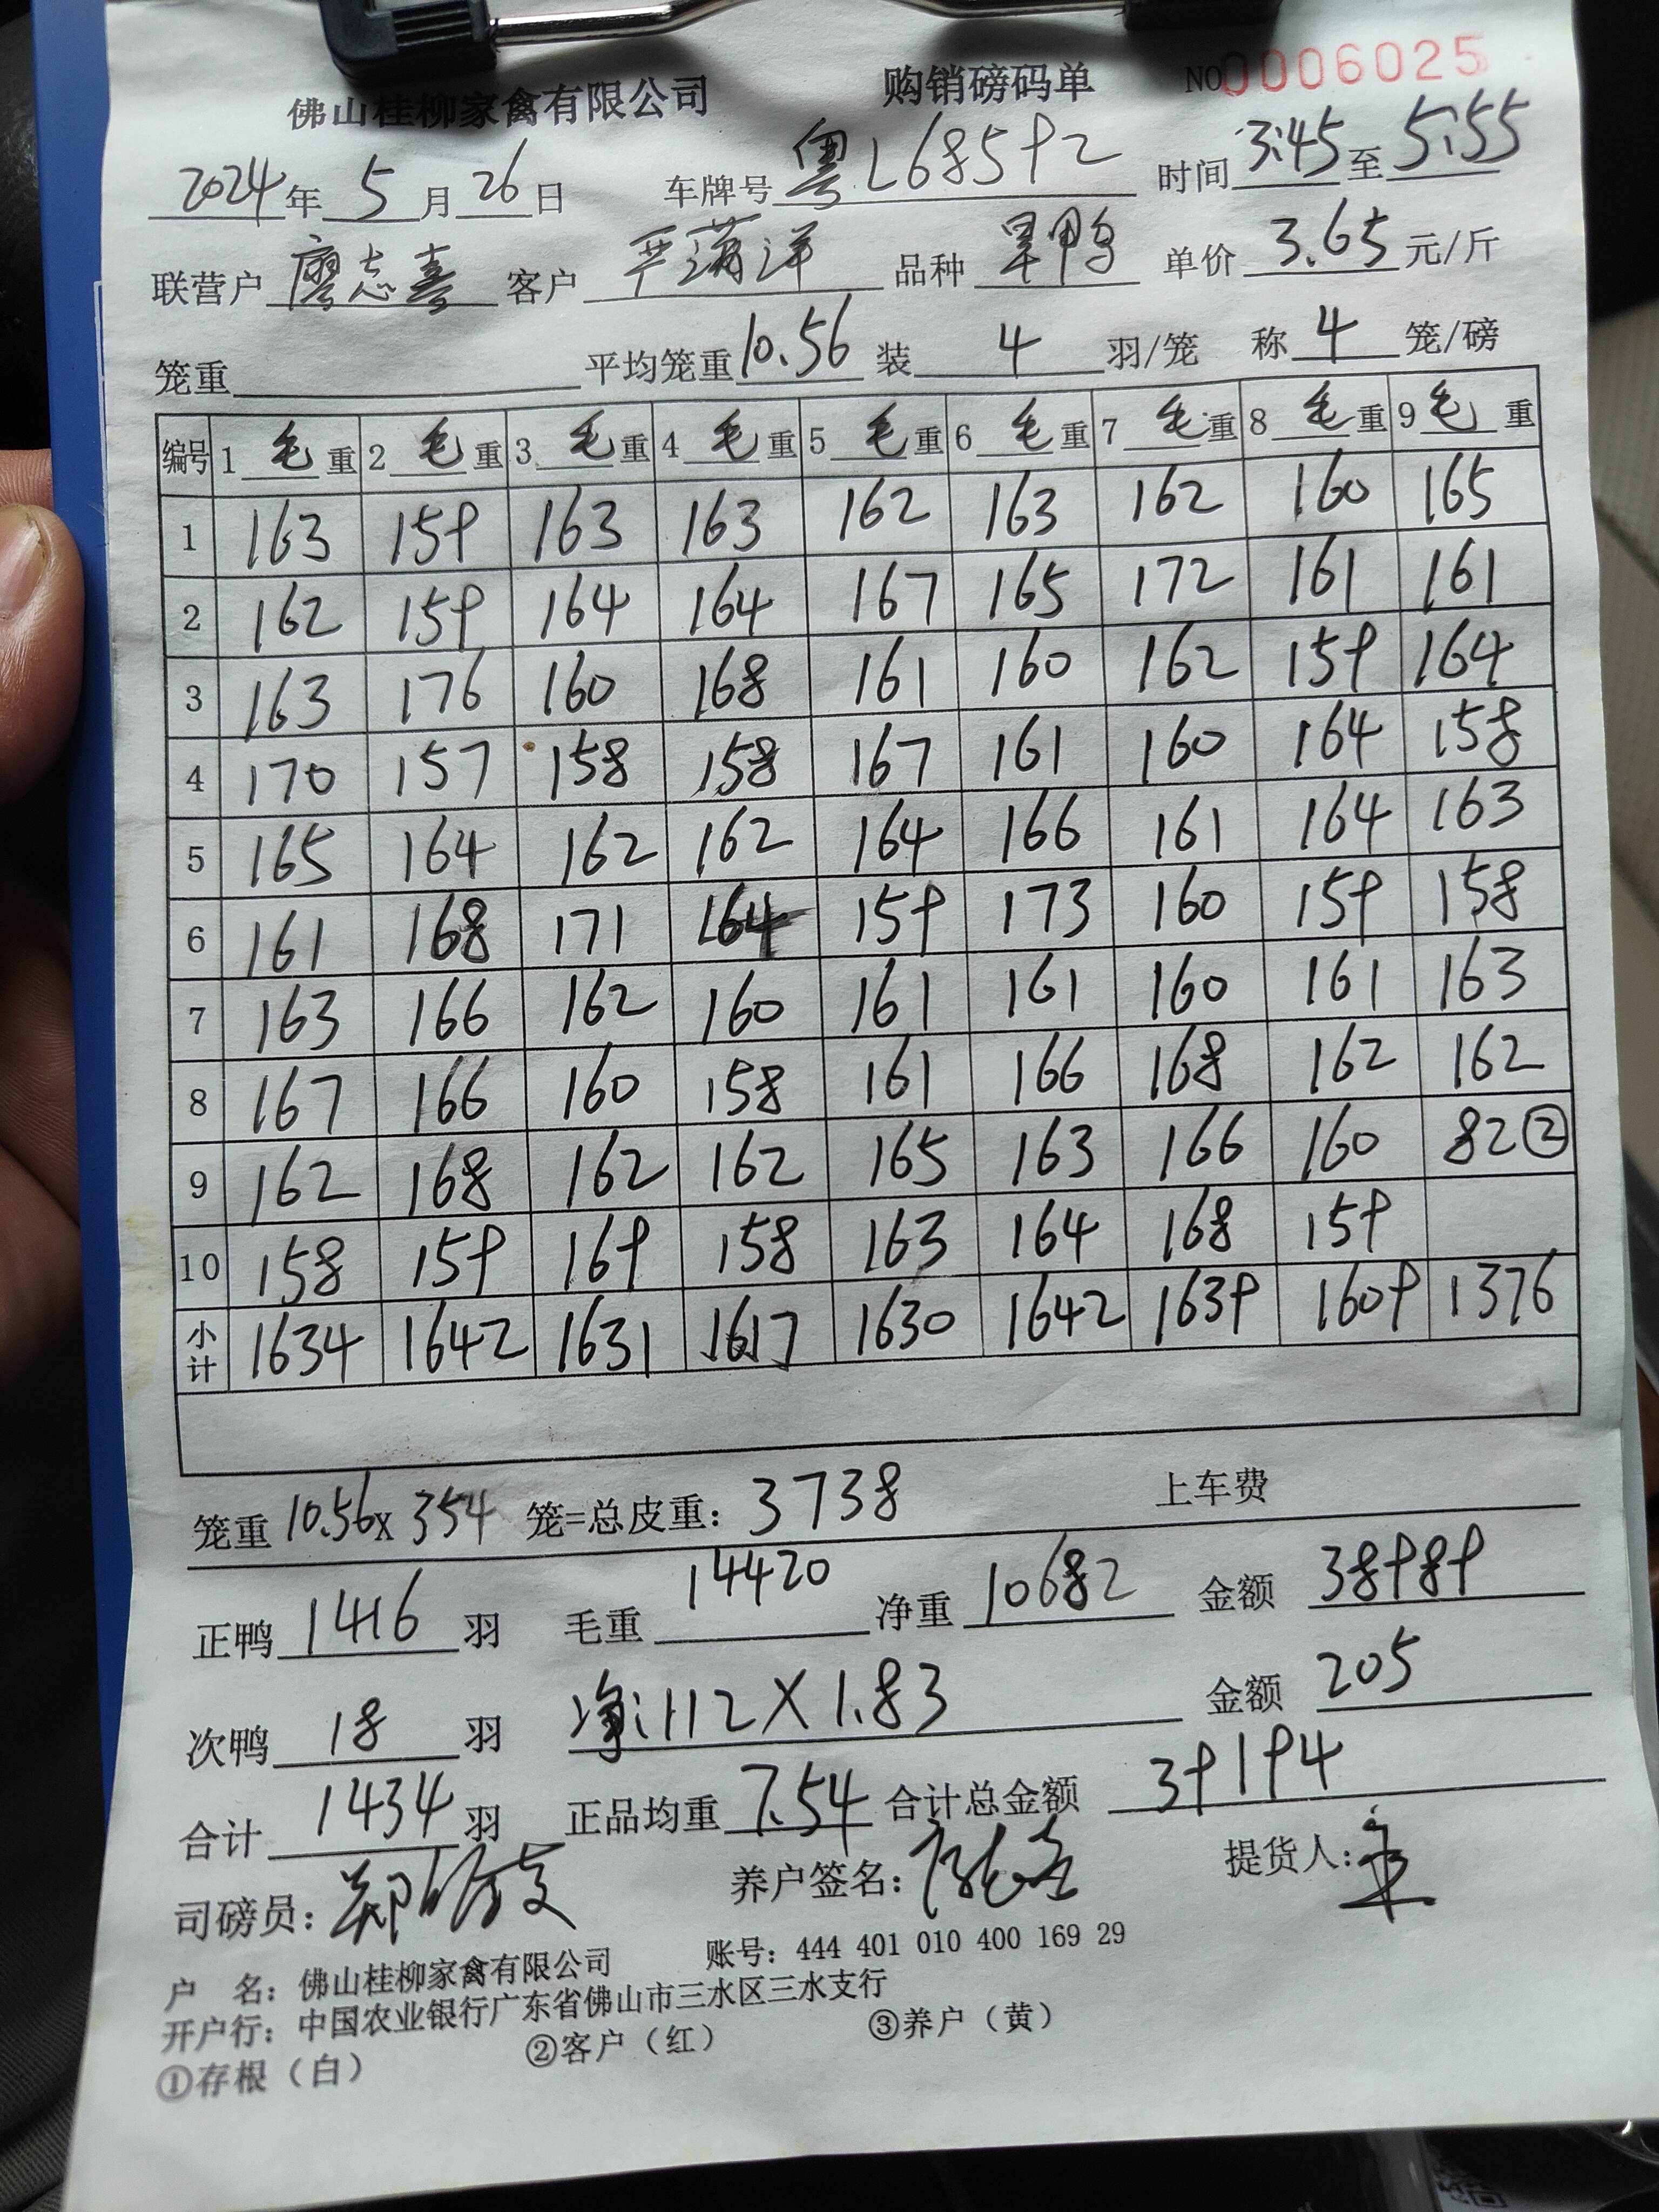 佛山桂柳家禽有限公司 购销磅码单 NO 0006025
2024年 5月 26日 车牌号 粤L68592 时间 3:45 至 5:55
联营户 廖志喜 客户 严满洋 品种 旱鸭 单价 3.65 元/斤
笼重 平均笼重 10.56 装 4 羽/笼 称 4 笼/磅
编号 1 毛 重 2 毛 重 3 毛 重 4 毛 重 5 毛 重 6 毛 重 7 毛 重 8 毛 重 9 毛 重
1 163 159 163 163 162 163 162 160 165
2 162 159 164 164 167 165 172 161 161
3 163 176 160 168 161 160 162 159 164
4 170 157 158 158 167 161 160 164 158
5 165 164 162 162 164 166 161 164 163
6 161 168 171 164 159 173 160 159 158
7 163 166 162 160 161 161 160 161 163
8 167 166 160 158 161 166 168 162 162
9 162 168 162 162 165 163 166 160 82②
10 158 159 169 158 163 164 168 159
小计 1634 1642 1631 1617 1630 1642 1639 1609 1376
笼重 10.56x 354 笼=总皮重: 3738 上车费
正鸭 1416 羽 毛重 14420 净重 10682 金额 38989
次鸭 18 羽 净:112X1.83 金额 205
合计 1434 羽 正品均重 7.54 合计总金额 39194
司磅员: 养户签名: 提货人:
户 名: 佛山桂柳家禽有限公司 账号: 444 401 010 400 169 29
开户行: 中国农业银行广东省佛山市三水区三水支行
①存根(白) ②客户(红) ③养户(黄)